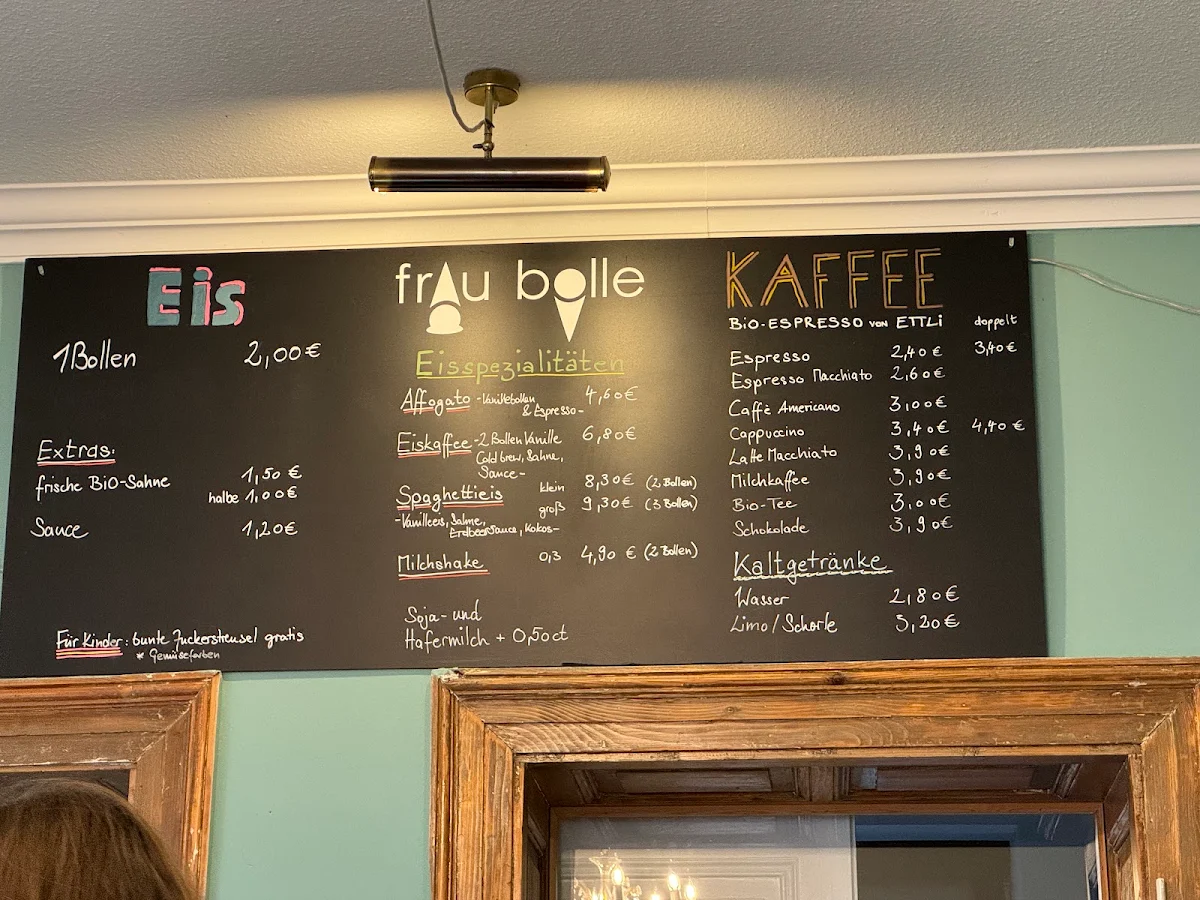 Eis
1 Bollen 2,00€
Extras:
frische Bio-Sahne 1,50 €
halbe 1,00€
Sauce 1,20€
Für Kinder: bunte Zuckerstreusel gratis
* Gemüsefarben
frau bolle
Eisspezialitäten
Affogato -Vanillebollen 4,60€
& Espresso-
Eiskaffee -2 Bollen Vanille 6,80€
Cold brew, Sahne,
Sauce-
Spaghettieis klein 8,30€ (2 Bollen)
groß 9,30€ (3 Bollen)
-Vanilleeis, Sahne,
Erdbeersauce, Kokos-
Milchshake 0,3 4,90 € (2 Bollen)
Soja- und
Hafermilch + 0,50ct
KAFFEE
BiO-ESPRESSO VON ETTLi doppelt
Espresso 2,40€ 3,40€
Espresso Macchiato 2,60€
Caffè Americano 3,00€
Cappuccino 3,40€ 4,40€
Latte Macchiato 3,90€
Milchkaffee 3,90€
Bio-Tee 3,00€
Schokolade 3,90€
Kaltgetränke
Wasser 2,80€
Limo/Schorle 3,20€